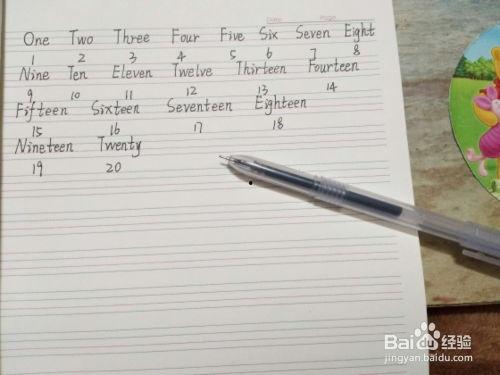 One Two Three Four Five Six Seven Eight
1 2 3 4 5 6 7 8
Nine Ten Eleven Twelve Thirteen Fourteen
9 10 11 12 13 14
Fifteen Sixteen Seventeen Eighteen
15 16 17 18
Nineteen Twenty
19 20
Baidu 经验
jingyan.baidu.com